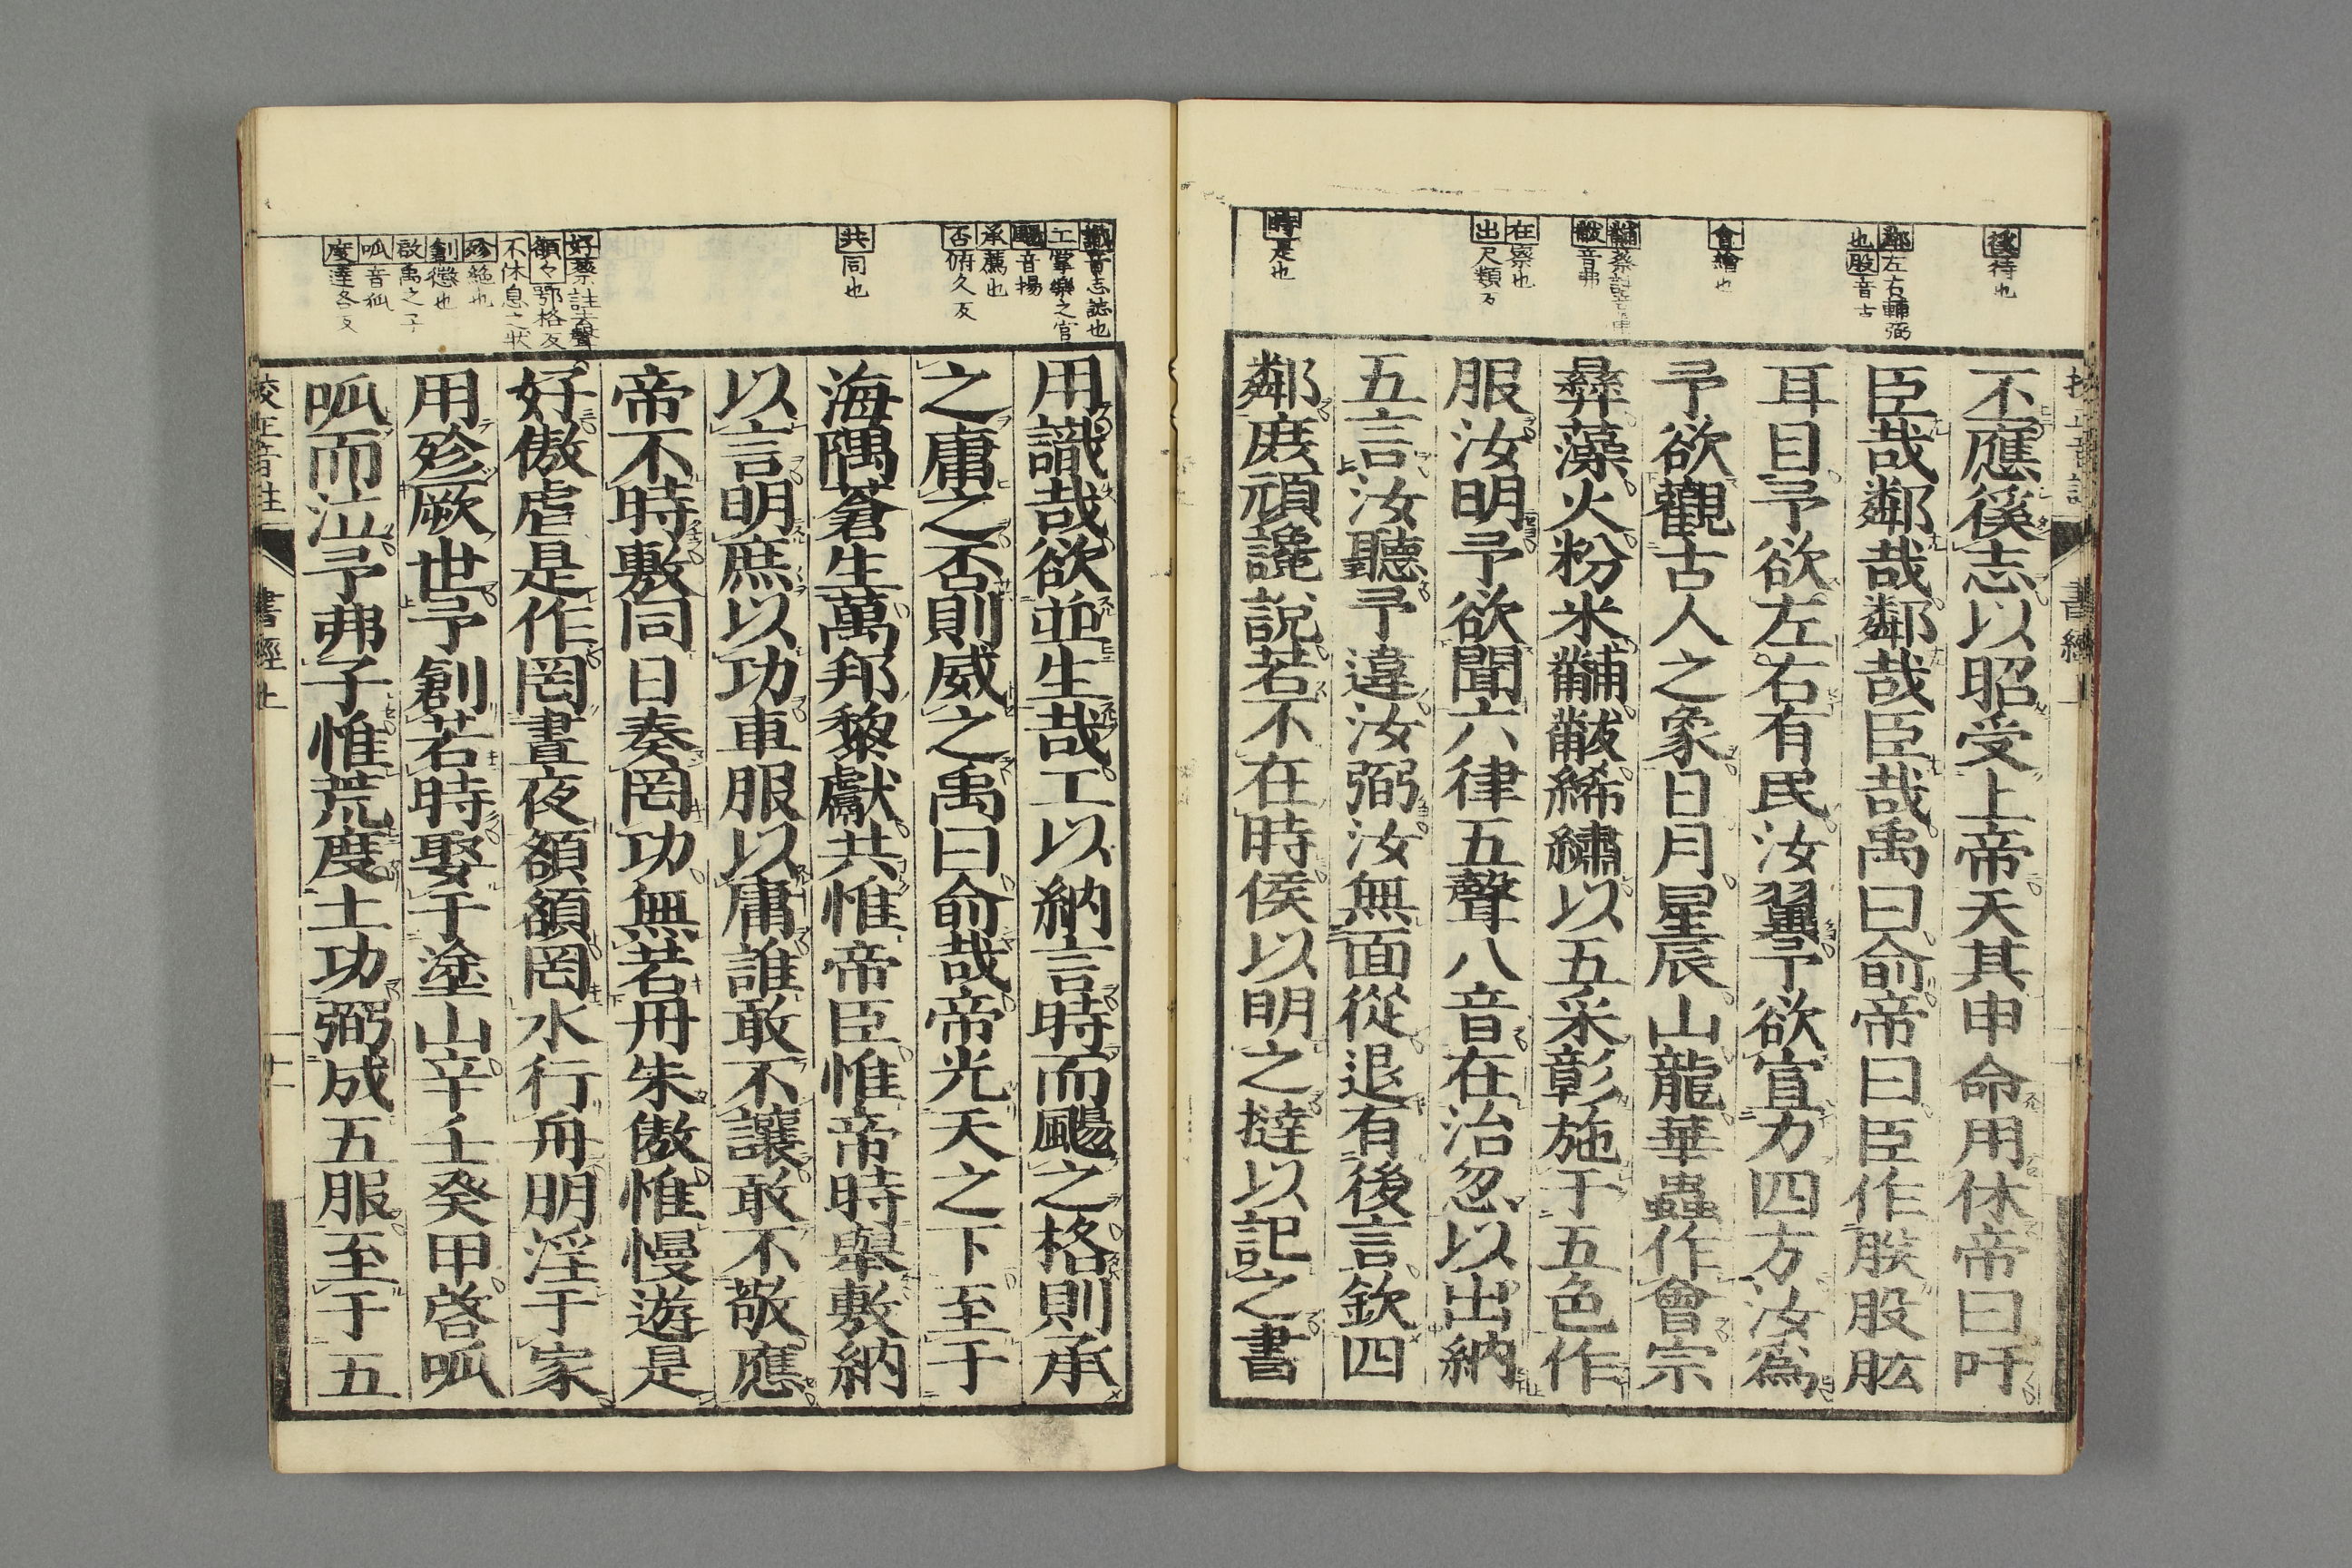 徯待也
鄰左右輔弼
也股音古
會繪也
黼蔡註音甫
黻音弗
在察也
出尺類反
時是也
不應徯志以昭受上帝天其申命用休帝曰吁
臣哉鄰哉鄰哉臣哉禹曰兪帝曰臣作朕股肱
耳目予欲左右有民汝翼予欲宣力四方汝爲
予欲觀古人之象日月星辰山龍華蟲作會宗
彝藻火粉米黼黻絺繡以五采彰施于五色作
服汝明予欲聞六律五聲八音在治忽以出納
五言汝聽予違汝弼汝無面從退有後言欽四
鄰庶頑讒說若不在時侯以明之撻以記之書
識音志誌也
工掌樂之官
颺音揚
承薦也
否俯久反
共同也
好蔡註去聲
頟々鄂格反
不休息之狀
殄絶也
創懲也
啟禹之子
呱音孤
度達各反
用識哉欲並生哉工以納言時而颺之格則承
之庸之否則威之禹曰兪哉帝光天之下至于
海隅蒼生萬邦黎獻共惟帝臣惟帝時舉敷納
以言明庶以功車服以庸誰敢不讓敢不敬應
帝不時敷同日奏罔功無若丹朱傲惟慢遊是
好傲虐是作罔晝夜頟頟罔水行舟朋淫于家
用殄厥世予創若時娶于塗山辛壬癸甲啓呱
呱而泣予弗子惟荒度土功弼成五服至于五
校正音註 書經上